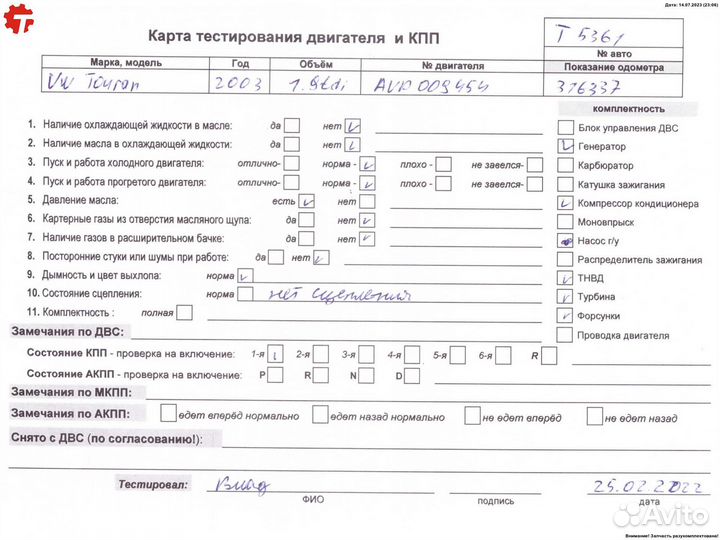 Дата: 14.07.2023 (23:06)
Т
Карта тестирования двигателя и КПП
T 5361
№ авто
Марка, модель Год Объём № двигателя Показание одометра
VW Touran 2003 1.9tdi AVR 009454 376337
комплектность
1. Наличие охлаждающей жидкости в масле: да нет
2. Наличие масла в охлаждающей жидкости: да нет
3. Пуск и работа холодного двигателя: отлично- норма - плохо - не завелся-
4. Пуск и работа прогретого двигателя: отлично- норма - плохо - не завелся-
5. Давление масла: есть нет
6. Картерные газы из отверстия масляного щупа: да нет
7. Наличие газов в расширительном бачке: да нет
8. Посторонние стуки или шумы при работе: да нет
9. Дымность и цвет выхлопа: норма
10. Состояние сцепления: норма нет сцепления
11. Комплектность : полная
Блок управления ДВС
Генератор
Карбюратор
Катушка зажигания
Компрессор кондиционера
Моновпрыск
Насос г/у
Распределитель зажигания
ТНВД
Турбина
Форсунки
Проводка двигателя
Замечания по ДВС:
Состояние КПП - проверка на включение: 1-я 2-я 3-я 4-я 5-я 6-я R
Состояние АКПП - проверка на включение: P R N D
Замечания по МКПП:
Замечания по АКПП: едет вперёд нормально едет назад нормально не едет вперёд не едет назад
Снято с ДВС (по согласованию!):
Тестировал: Влад 25.02.2022
ФИО подпись дата
Avito
Внимание! Запчасть разукомплектована!